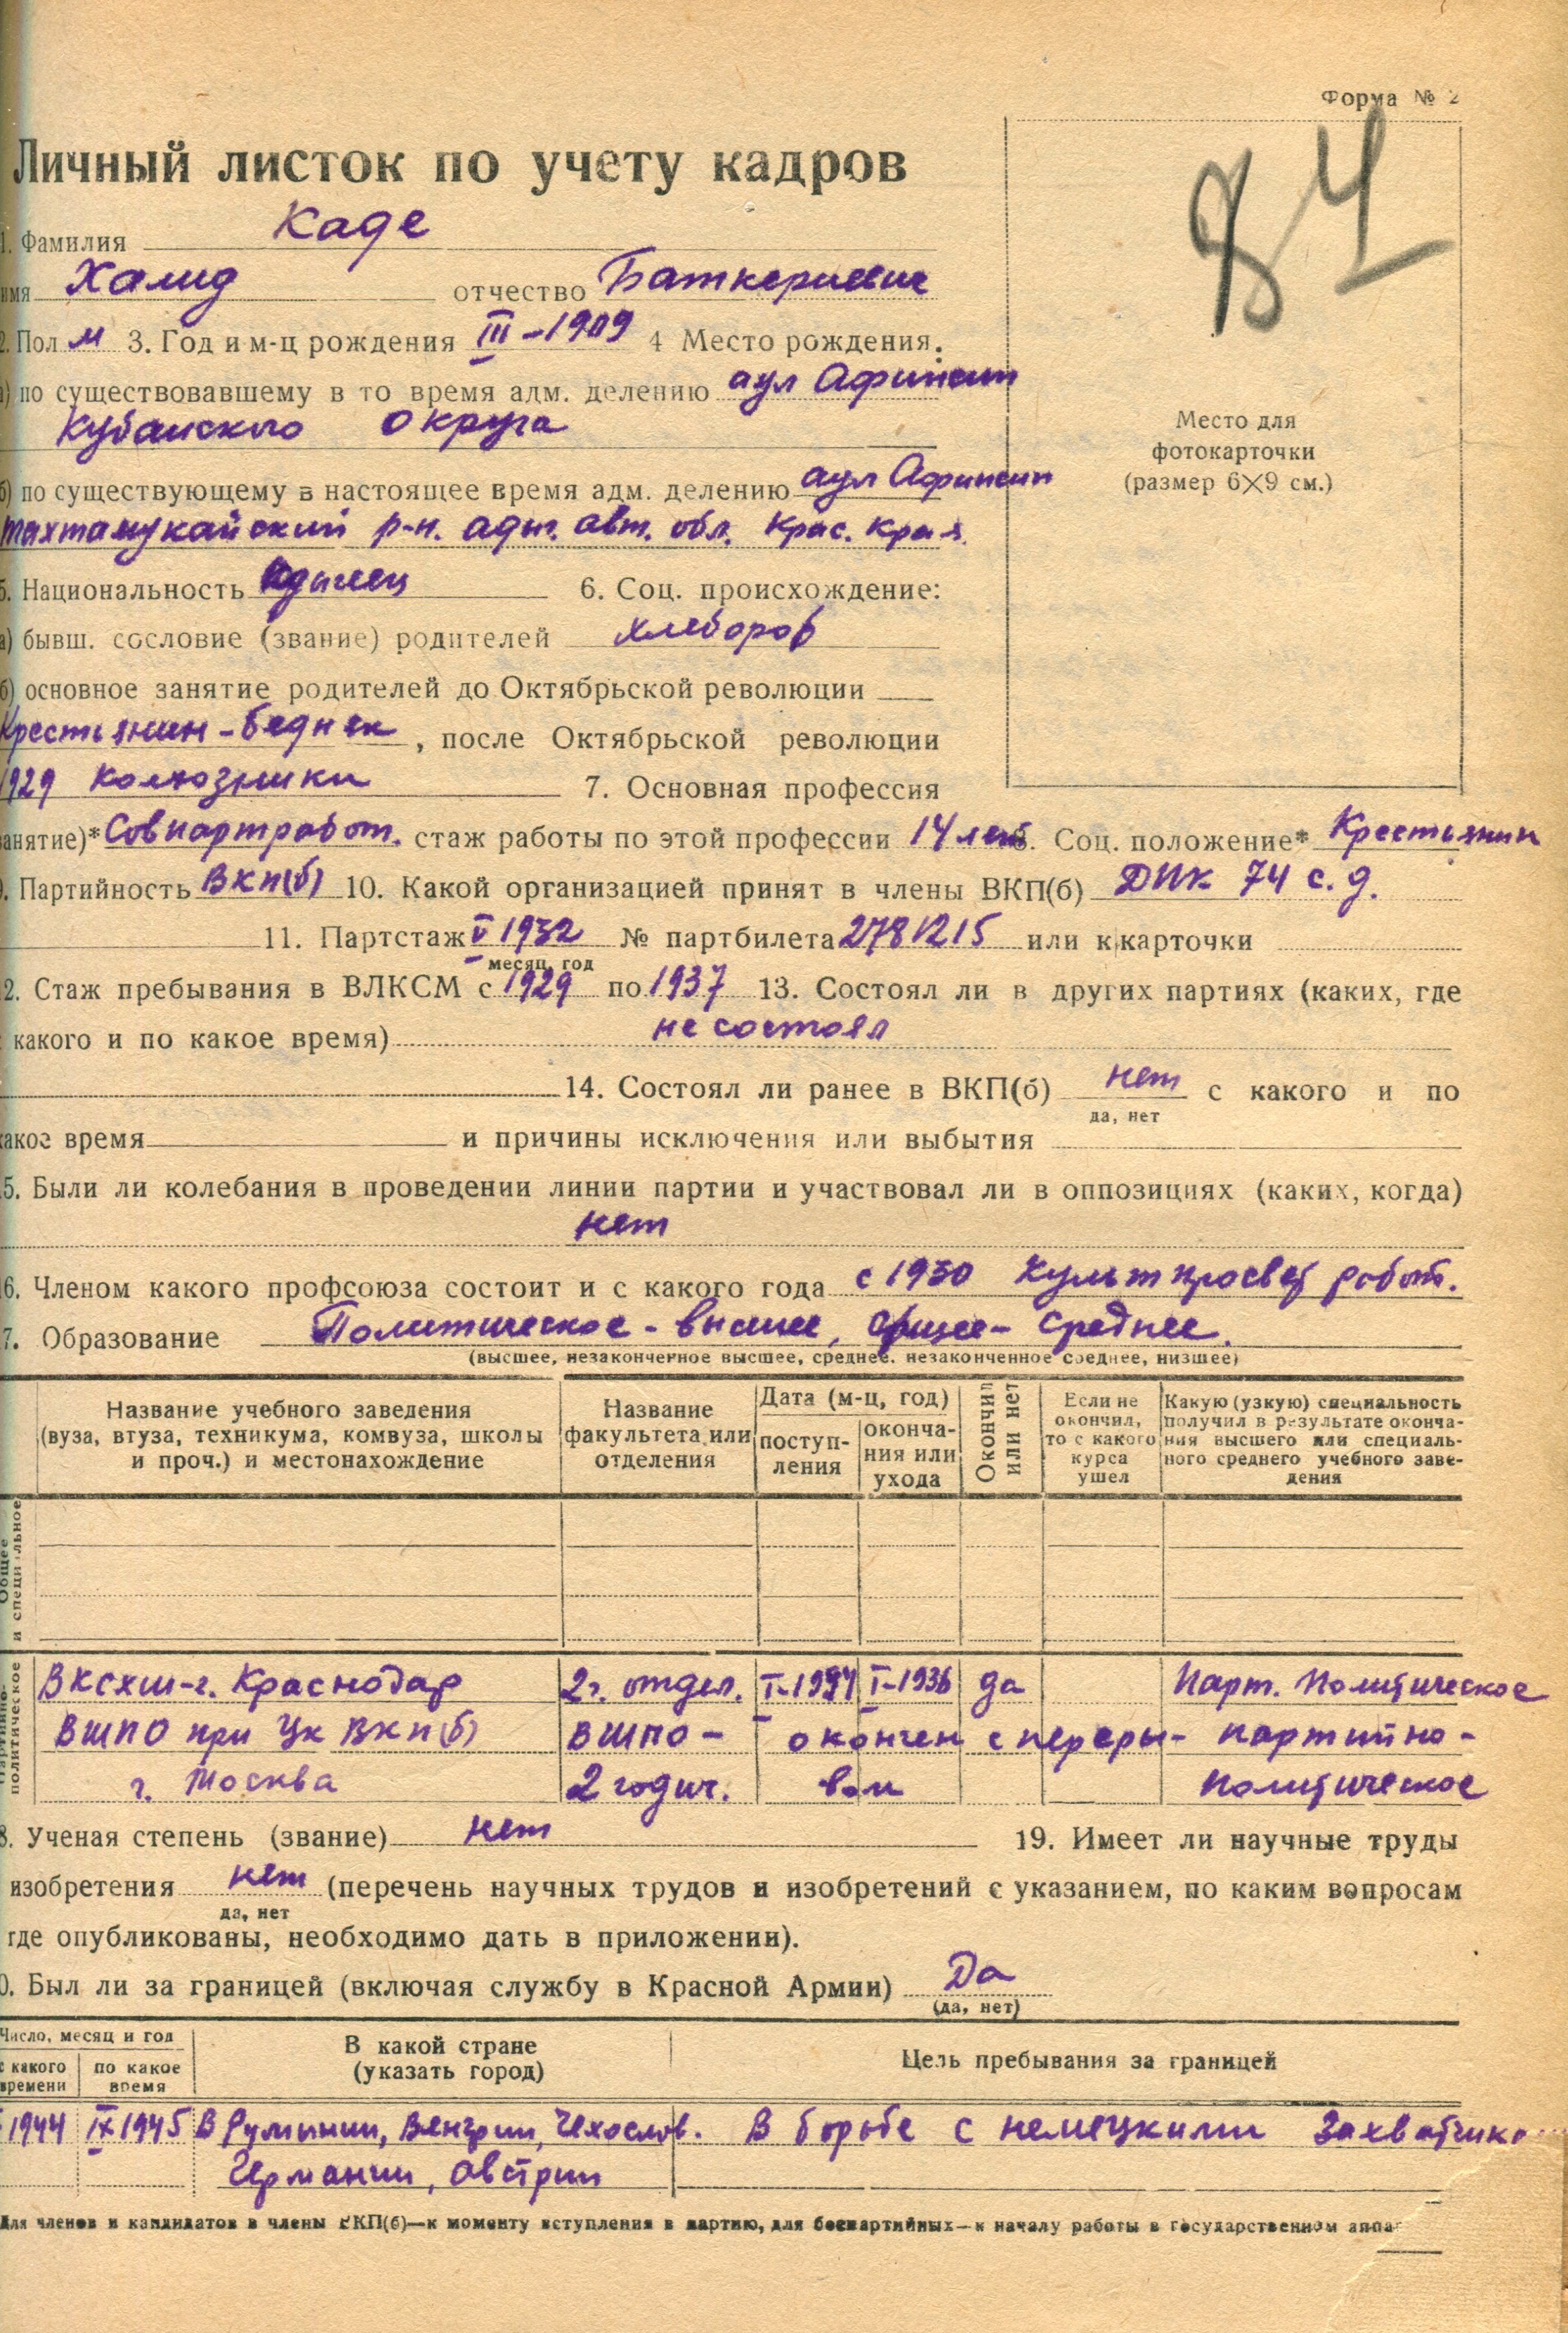 Форма № 2
84
Личный листок по учету кадров
1. Фамилия Каде
имя Халид отчество Баткериевич
2. Пол м 3. Год и м-ц рождения III-1909 4 Место рождения:
а) по существовавшему в то время адм. делению аул Афипсип
Кубанского округа
Место для
фотокарточки
(размер 6×9 см.)
б) по существующему в настоящее время адм. делению аул Афипсип
Тахтамукайский р-н. адыг. авт. обл. Крас. Края
5. Национальность адыгеец 6. Соц. происхождение:
а) бывш. сословие (звание) родителей хлебороб
б) основное занятие родителей до Октябрьской революции
Крестьянин-бедняк, после Октябрьской революции
1929 колхозники 7. Основная профессия
анятие)* Совпартработ. стаж работы по этой профессии 14 лет 8. Соц. положение* Крестьянин
9. Партийность ВКП(б) 10. Какой организацией принят в члены ВКП(б) ДПК 74 с.д.
11. Партстаж V 1932 № партбилета 2781215 или к карточки
месяц, год
2. Стаж пребывания в ВЛКСМ с 1929 по 1937 13. Состоял ли в других партиях (каких, где
какого и по какое время) не состоял
14. Состоял ли ранее в ВКП(б) нет с какого и по
да, нет
акое время и причины исключения или выбытия
5. Были ли колебания в проведении линии партии и участвовал ли в оппозициях (каких, когда)
нет
6. Членом какого профсоюза состоит и с какого года с 1930 Культпросвет работ.
7. Образование Политическое - высшее, общее - среднее.
(высшее, незаконченное высшее, среднее, незаконченное среднее, низшее)
Название учебного заведения (вуза, втуза, техникума, комвуза, школы и проч.) и местонахождение
Название факультета или отделения
Дата (м-ц, год)
поступ-ления
оконча-ния или ухода
Окончил или нет
Если не окончил, то с какого курса ушел
Какую (узкую) специальность получил в результате оконча-ния высшего или специаль-ного среднего учебного заве-дения
Общее и специальное
Партийно-политическое
ВКСХШ-г. Краснодар 2г. отдел. I-1934 I-1936 да Парт. Политическое
ВШПО при Цк ВКП(б) ВШПО - окончен с переры- партийно-
г. Москва 2 годич. вом политическое
8. Ученая степень (звание) нет 19. Имеет ли научные труды
изобретения нет (перечень научных трудов и изобретений с указанием, по каким вопросам
да, нет
где опубликованы, необходимо дать в приложении).
0. Был ли за границей (включая службу в Красной Армии) Да
(да, нет)
Число, месяц и год
с какого времени
по какое время
В какой стране (указать город)
Цель пребывания за границей
1944 IX 1945 В Румынии, Венгрии, Чехослов. В борьбе с немецкими захватчика
Германии, Австрии
Для членов и кандидатов в члены ВКП(б)—к моменту вступления в партию, для беспартийных—к началу работы в государственном аппа